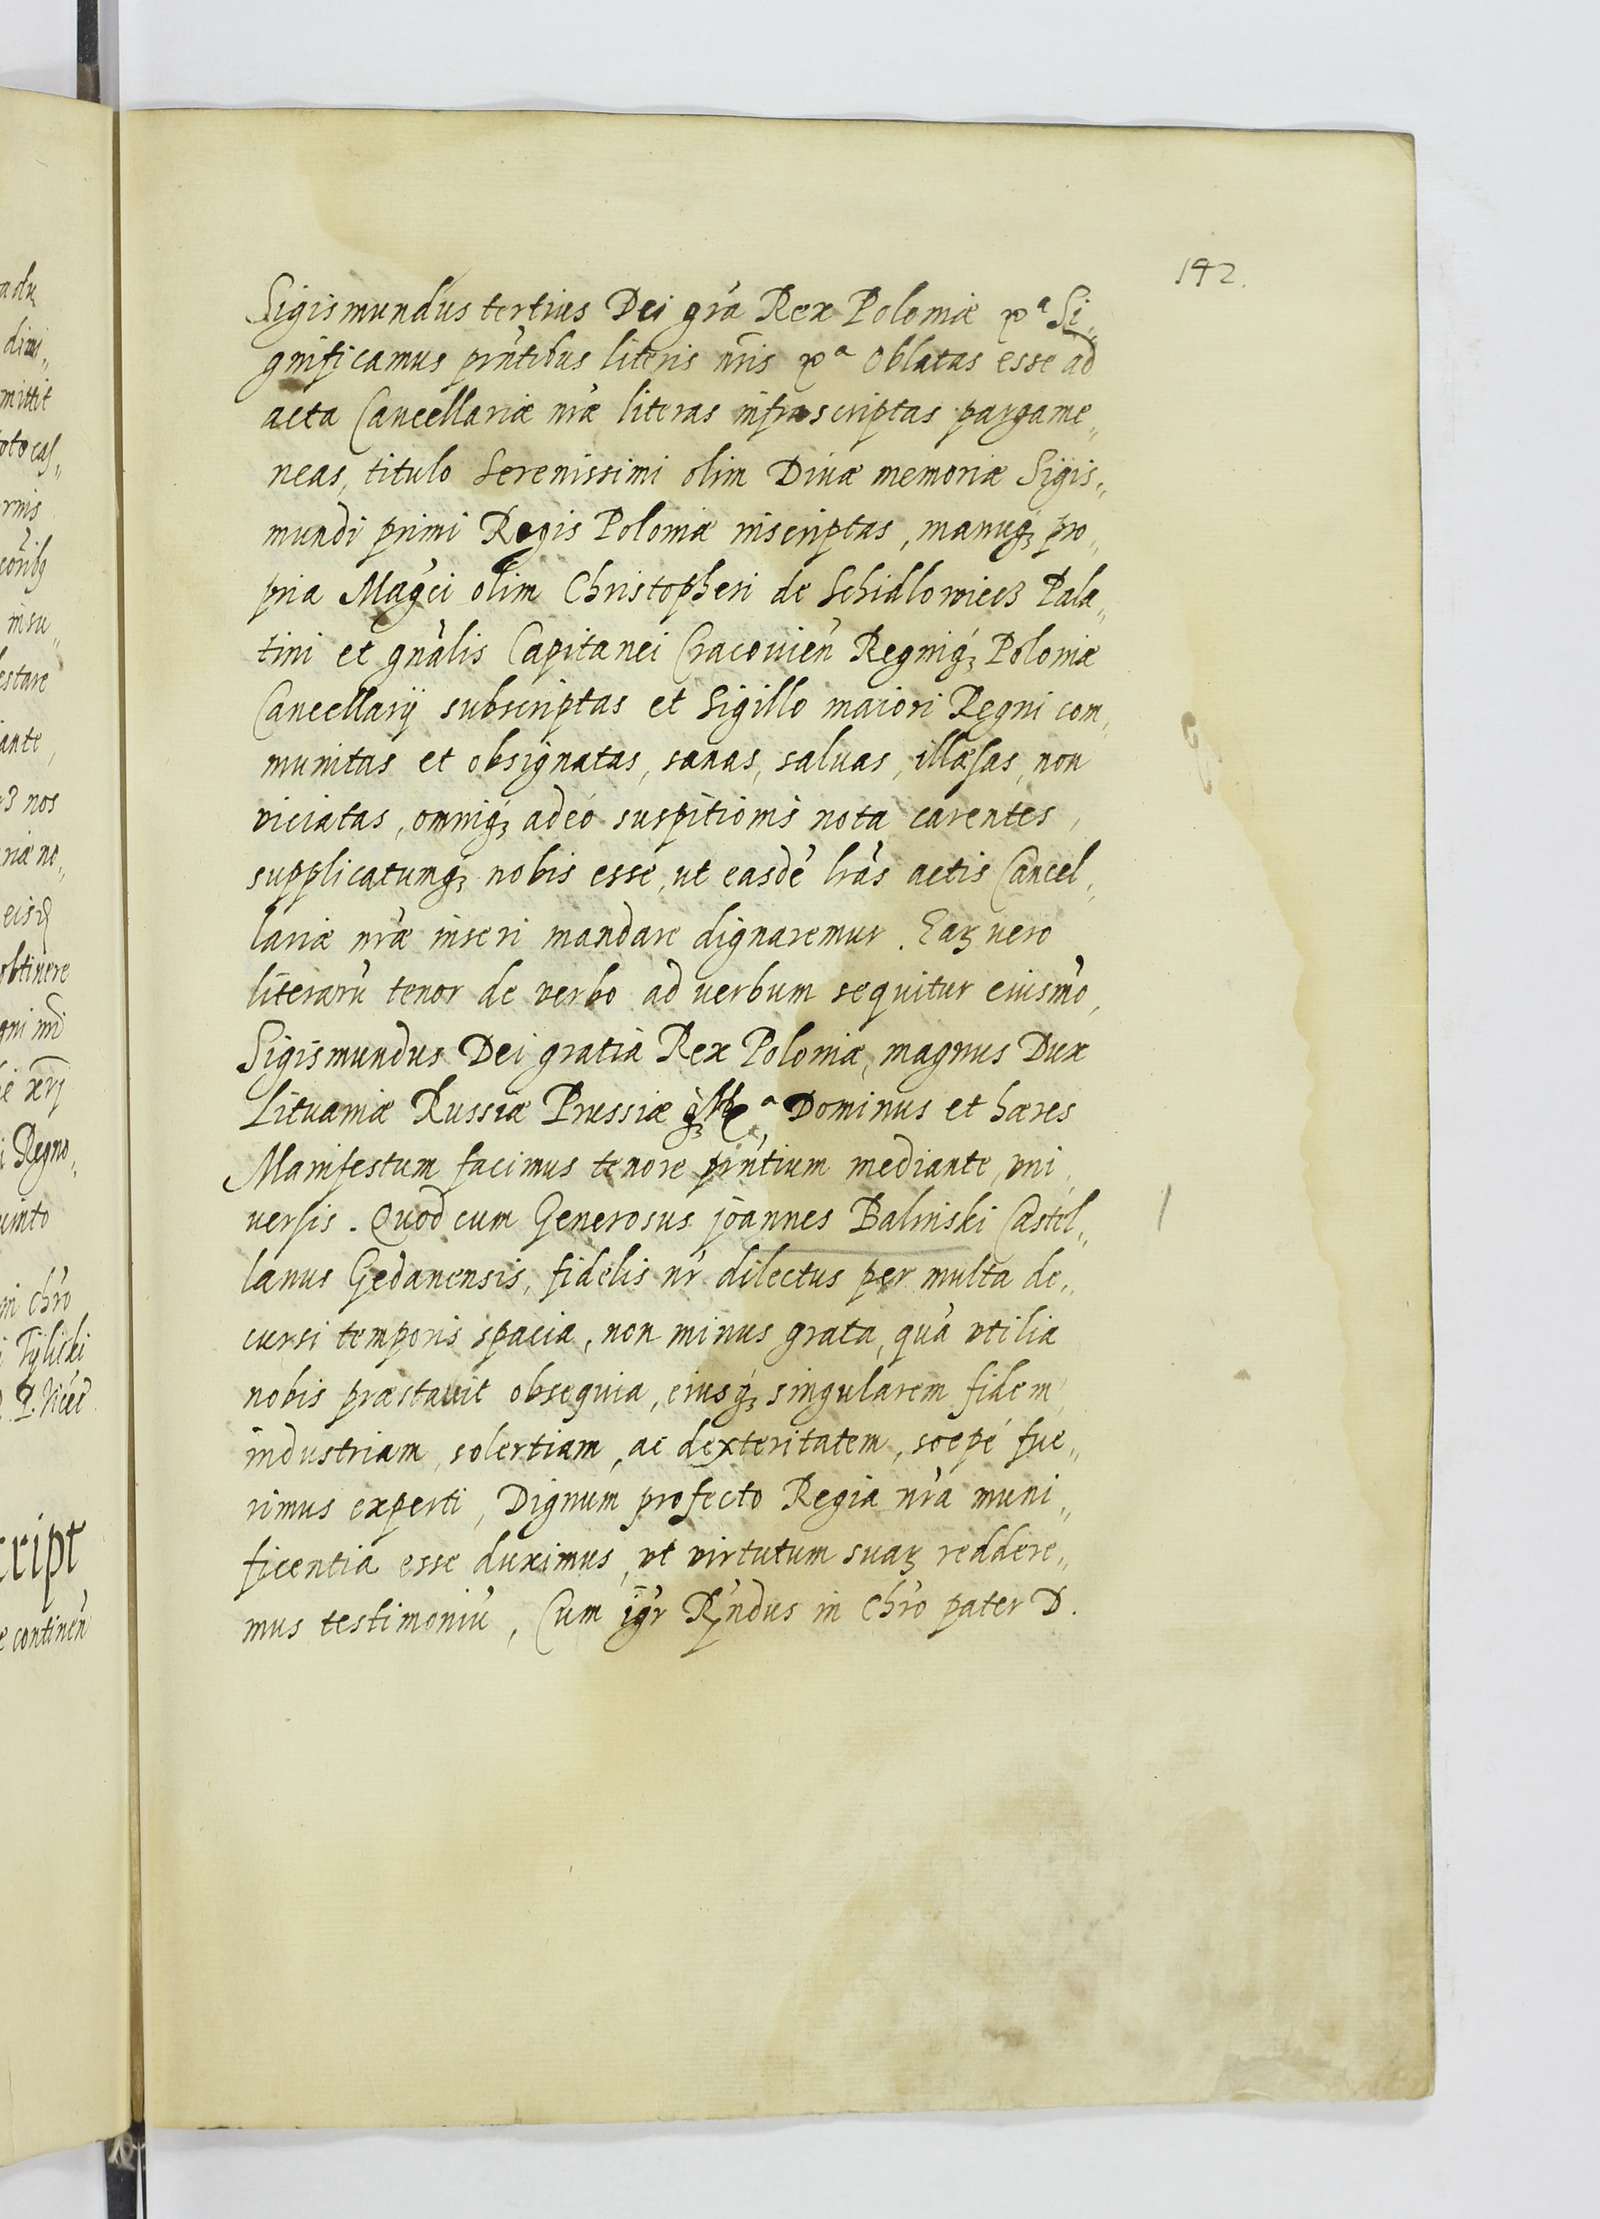 142.
Sigismundus tertius Dei gra̅ Rex Poloniæ &a Si„
gnificamus pn̅tibus literis nr̅is &a Oblatas esse ad
acta Cancellariæ nr̅æ literas infrascriptas pargame„
neas, titulo Serenissimi olim Diuæ memoriæ Sigis„
mundi primi Regis Poloniæ inscriptas, manuq̨ pro„
pria Mag̅ci olim Christopheri de Schidlowiecz Pala„
tini et gn̅alis Capitanei Cracouien̅ Regniq̨ Poloniæ
Cancellarij subscriptas et Sigillo maiori Regni com„
munitas et obsignatas, sanas, saluas, illæsas, non
viciatas, omniq̨ adeo suspitionis nota carentes,
supplicatumq̨ nobis esse, ut easdē lr̅as actis Cancel„
lariæ nr̅æ inseri mandare dignaremur. Eaꝝ vero
literarū tenor de verbo ad verbum sequitur eiusmō,
Sigismundus Dei gratia Rex Poloniæ, magnus Dux
Lituaniæ Russiæ Prussiæ &a Dominus et hæres
Manifestum facimus tenore pn̅tium mediante, vni„
versis. Quod cum Generosus joannes Balinski Castel„
lanus Gedanensis, fidelis nr̅ dilectus per multa de„
cursi temporis spacia, non minus grata, quā vtilia
nobis præstauit obsequia, eiusq̨ singularem fidem,
industriam, solertiam, ac dexteritatem, sœpé fue„
rimus experti, Dignum profecto Regia nr̅a muni„
ficentia esse duximus, vt virtutum suaꝝ reddere„
mus testimoniū, Cum ig̅r Rn̅dus in Chr̅o pater D.